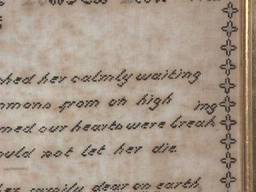 ched her calmly waiting
mmons from on high ing
med our hearts were break
ould not let her die
her family dear on earth